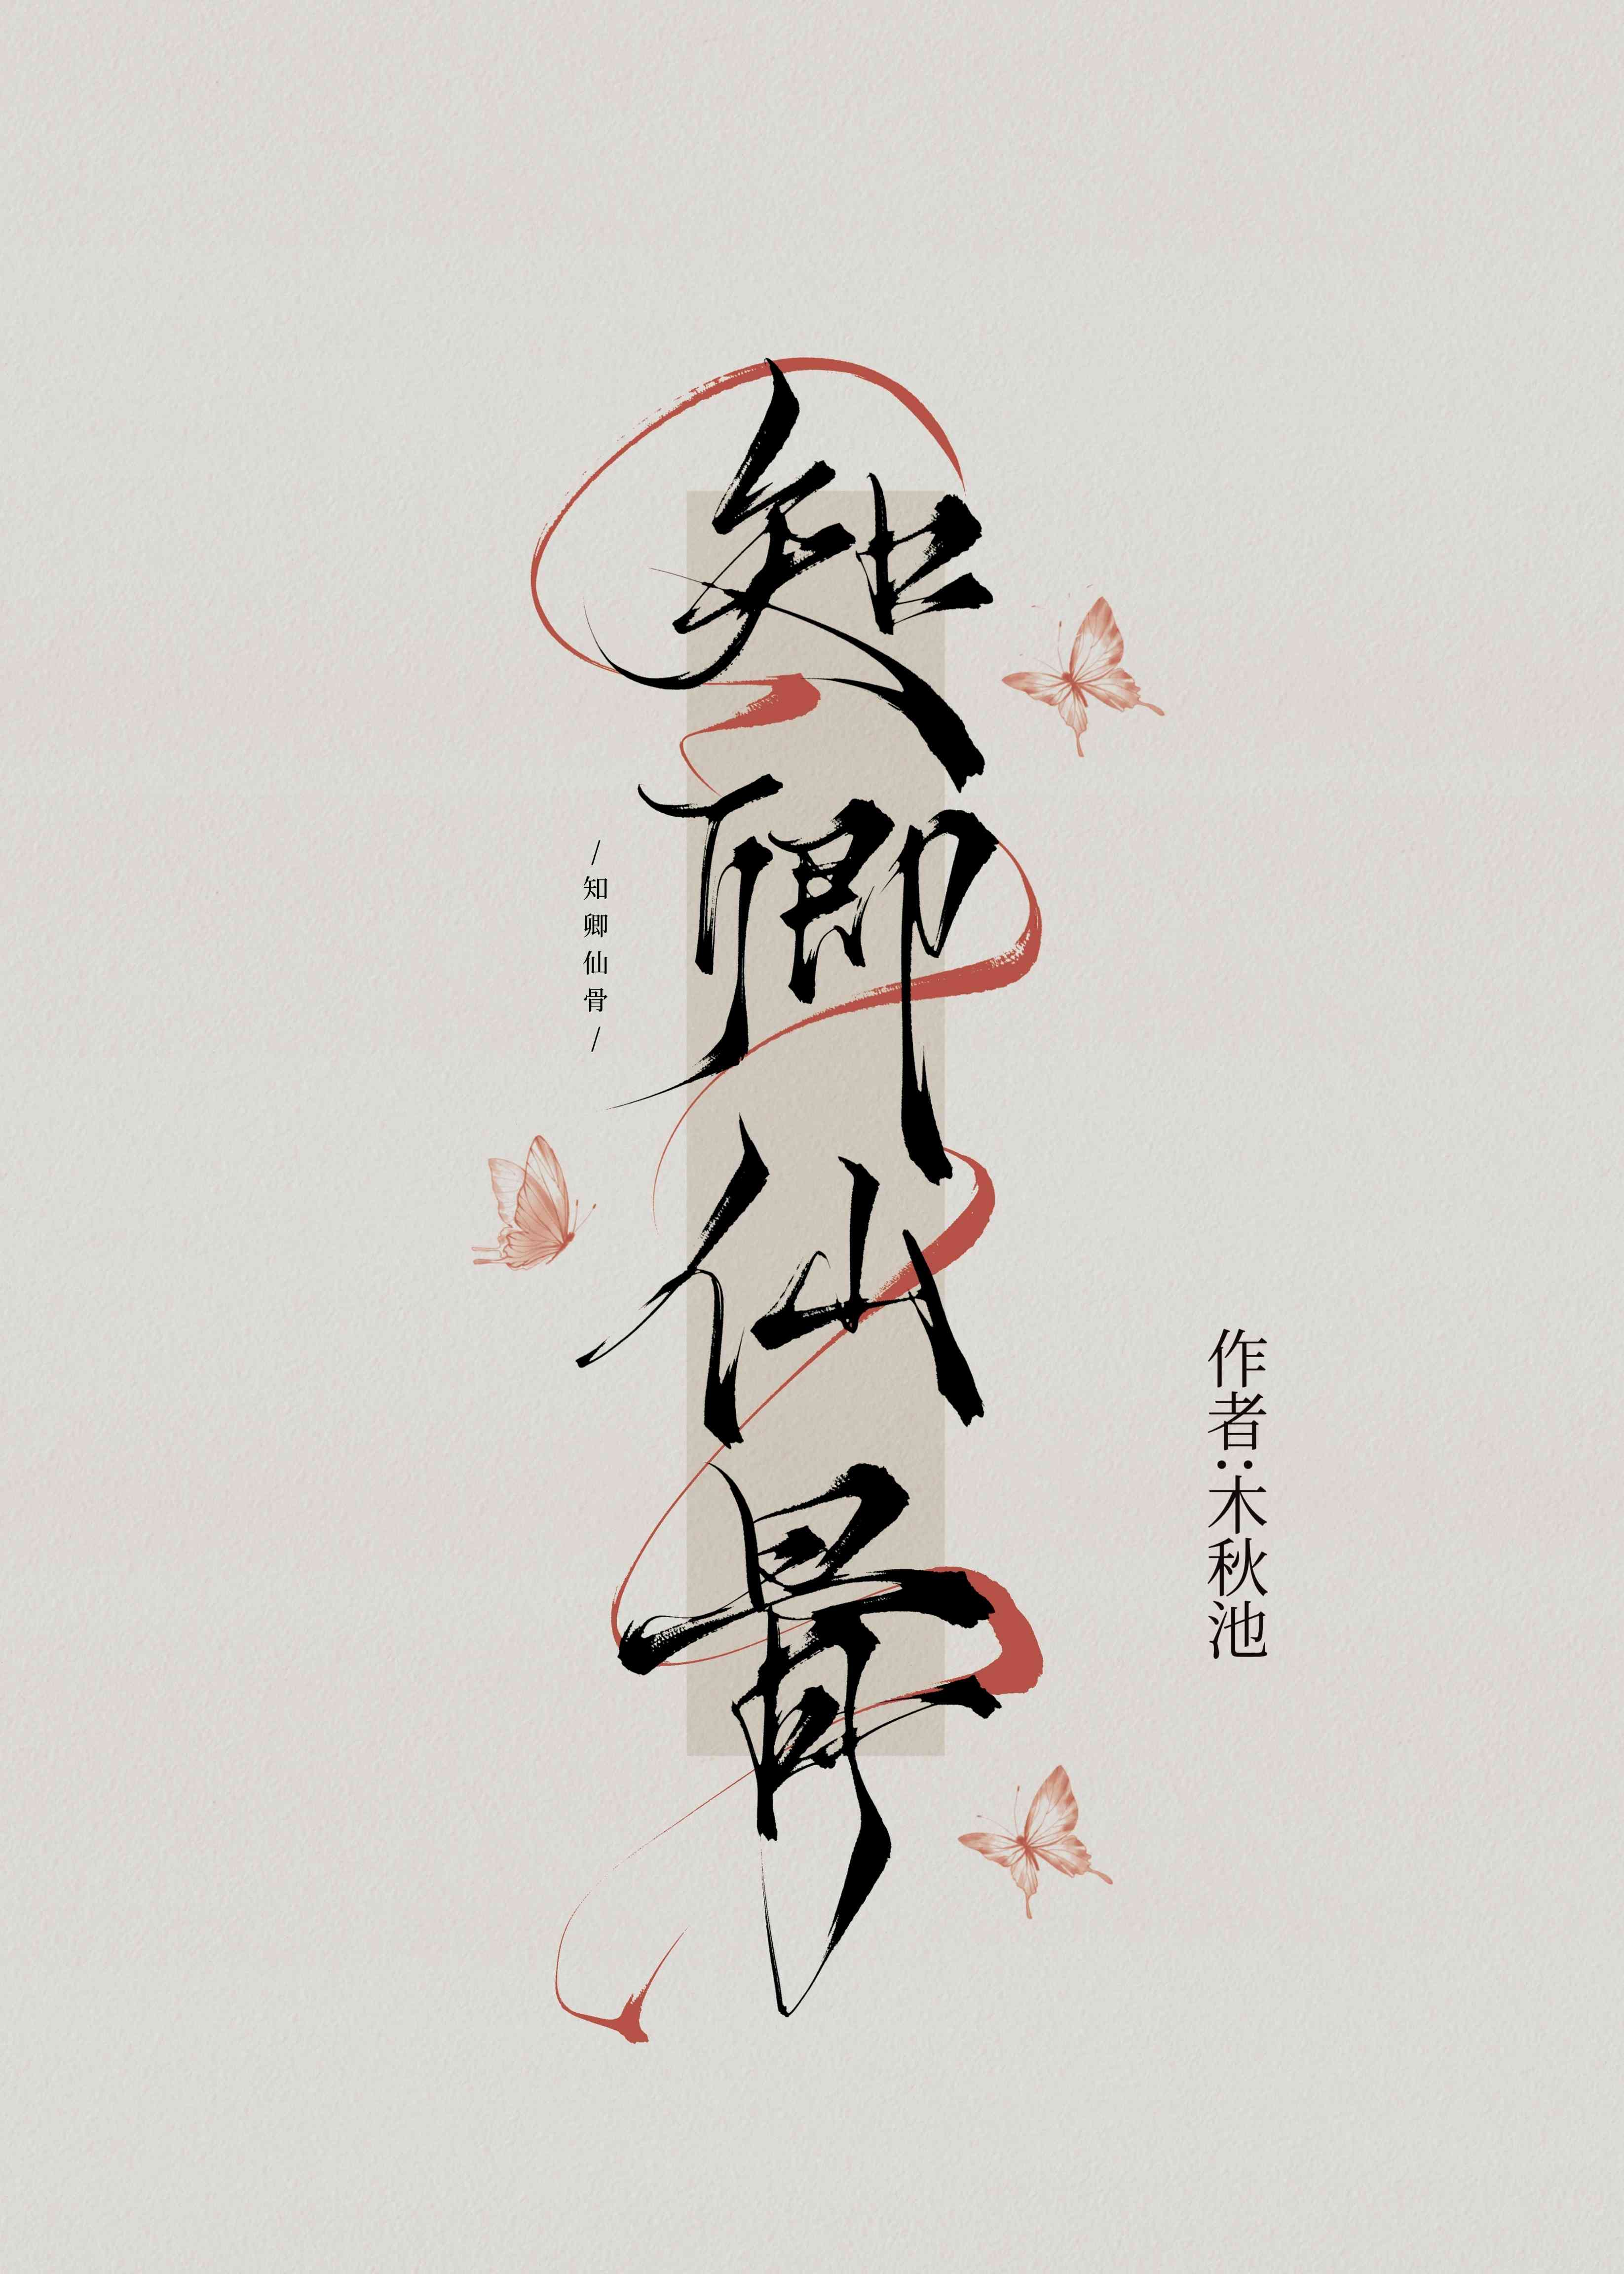 知卿仙骨
/知卿仙骨/
作者:木秋池